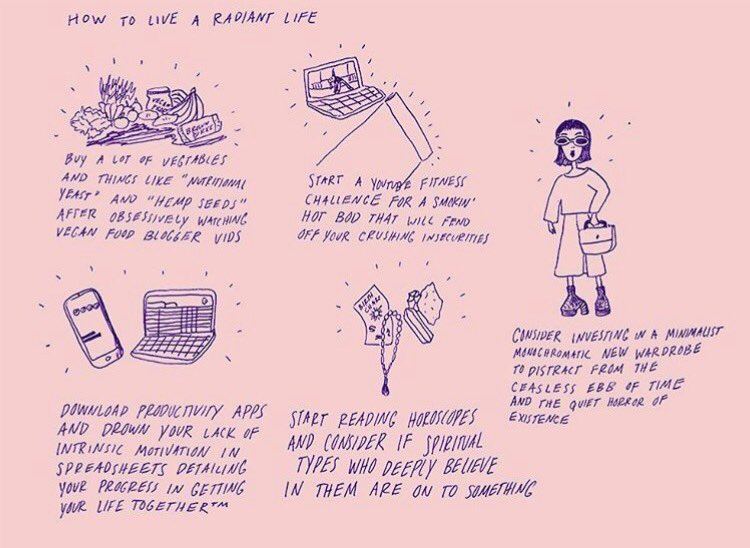 HOW TO LIVE A RADIANT LIFE
BUY A LOT OF VEGTABLES
AND THINGS LIKE "NUTRITIONAL
YEAST" AND "HEMP SEEDS"
AFTER OBSESSIVELY WATCHING
VEGAN FOOD BLOGGER VIDS
START A YOUTUBE FITNESS
CHALLENGE FOR A SMOKIN'
HOT BOD THAT WILL FEND
OFF YOUR CRUSHING INSECURITIES
CONSIDER INVESTING IN A MINIMALIST
MONOCHROMATIC NEW WARDROBE
TO DISTRACT FROM THE
CEASLESS EBB OF TIME
AND THE QUIET HORROR OF
EXISTENCE
DOWNLOAD PRODUCTIVITY APPS
AND DROWN YOUR LACK OF
INTRINSIC MOTIVATION IN
SPREADSHEETS DETAILING
YOUR PROGRESS IN GETTING
YOUR LIFE TOGETHER™
BIRTH
CHART
START READING HOROSCOPES
AND CONSIDER IF SPIRITUAL
TYPES WHO DEEPLY BELIEVE
IN THEM ARE ON TO SOMETHING